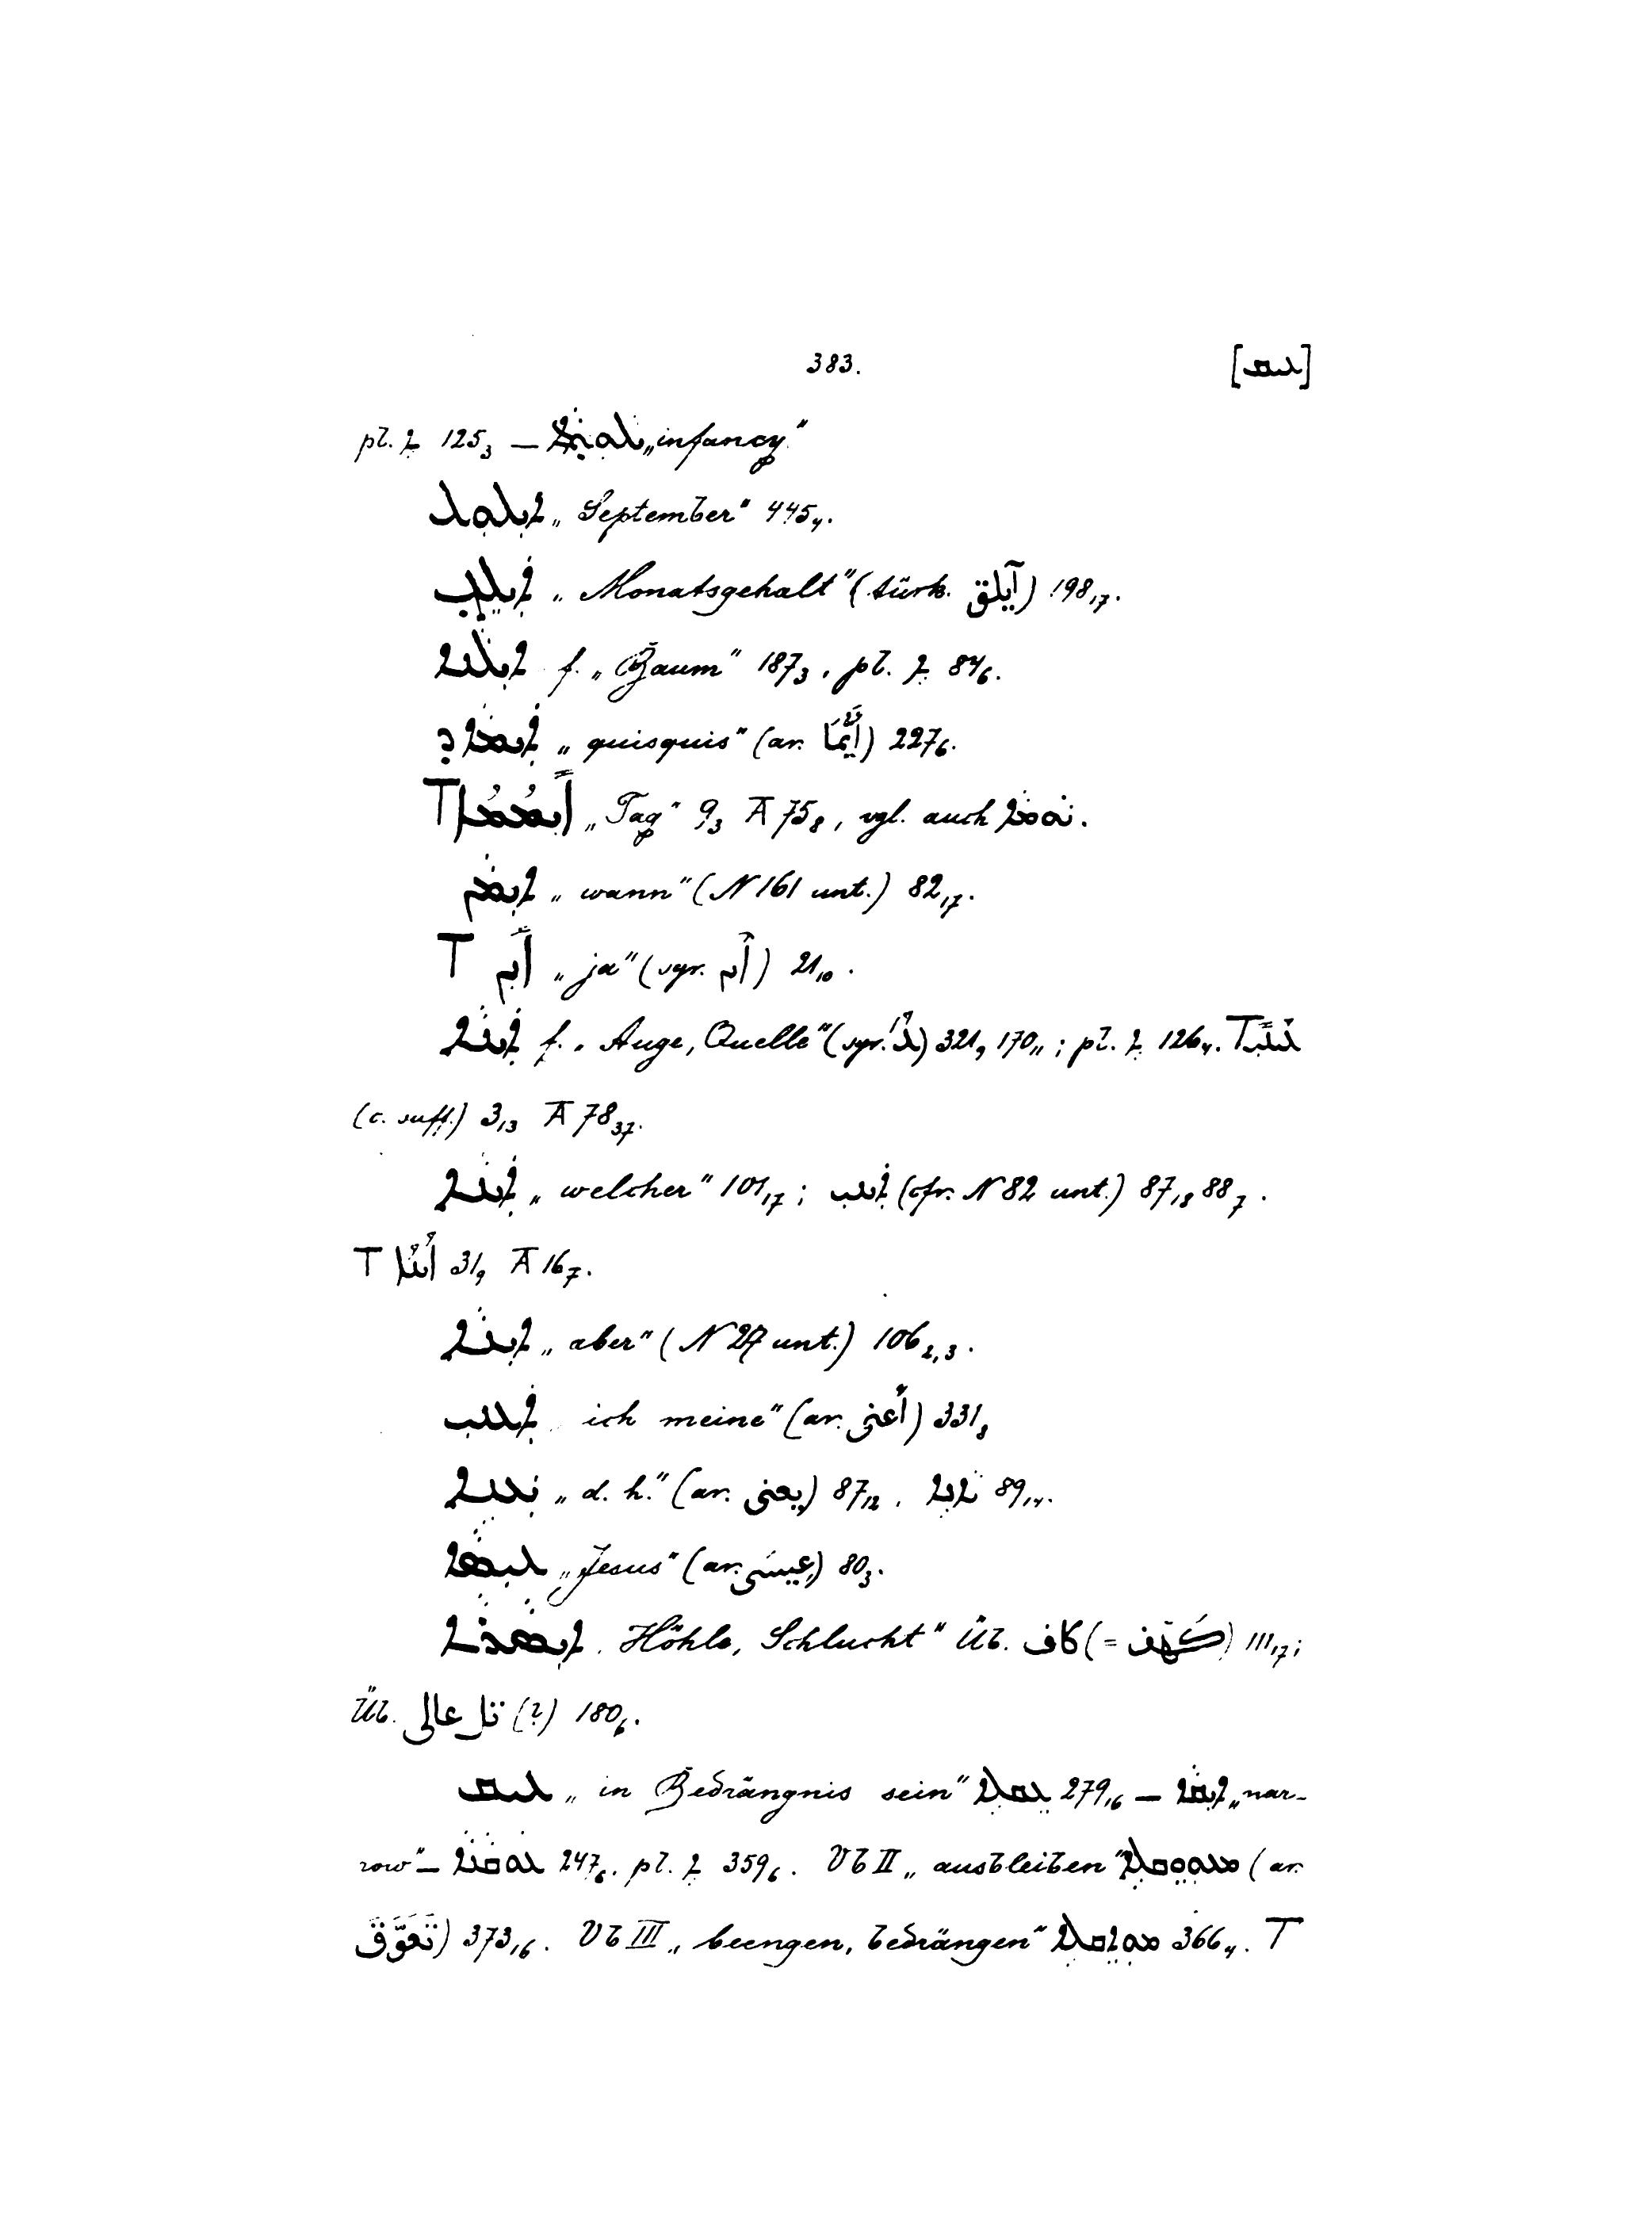 383. [ܥܝܩ]
pl. ܐ 125₃ — „infancy“
ܐܝܠܘܠ „September“ 445₄.
„Monatsgehalt“ (türk. آيلق) 198₁₇.
ܐܝܠܢܐ f. „Baum“ 187₃, pl. ܐ 84₆.
ܐܝܡܐ ܕ „quisquis“ (ar. أَيُّمَا) 227₆.
T ܐܝܡܡܐ „Tag“ 9₃ A 75₈, vgl. auch ܝܘܡܐ.
ܐܝܡܢ „wann“ (N 161 unt.) 82₁₇.
T ܐܝܢ „ja“ (syr. ܐܝܢ) 21₁₀.
ܐܝܢܐ f. „Auge, Quelle“ (syr.) 321₉ 170₁₁; pl. ܐ 126₄. T
(c. suff.) 3₁₃ A 78₃₇.
ܐܝܢܐ „welcher“ 101₁₇; ܐܝܢܝ (cfr. N 82 unt.) 87₁₈ 88₇.
T ܐܝܢܐ 31₉ A 16₇.
ܐܝܢܐ „aber“ (N 27 unt.) 106₂,₃.
„ich meine“ (ar. أعنى) 331₈
ܝܥܢܝ „d. h.“ (ar. يعنى) 87₁₂, 89₁₄.
ܥܝܣܐ „Jesus“ (ar. عيسَى) 80₃.
„Höhle, Schlucht“ Üb. كاف (= كَهْف) 111₁₇;
Üb. تل عالى (?) 180₆.
ܥܝܩ „in Bedrängnis sein“ 279₁₆ — ܐܝܩܐ „nar-
row“ — ܥܘܩܢܐ 247₆. pl. ܐ 359₆. Vb II „ausbleiben“ (ar.
تَعَوَّقَ) 373₁₆. Vb III „beengen, bedrängen“ 366₄. T